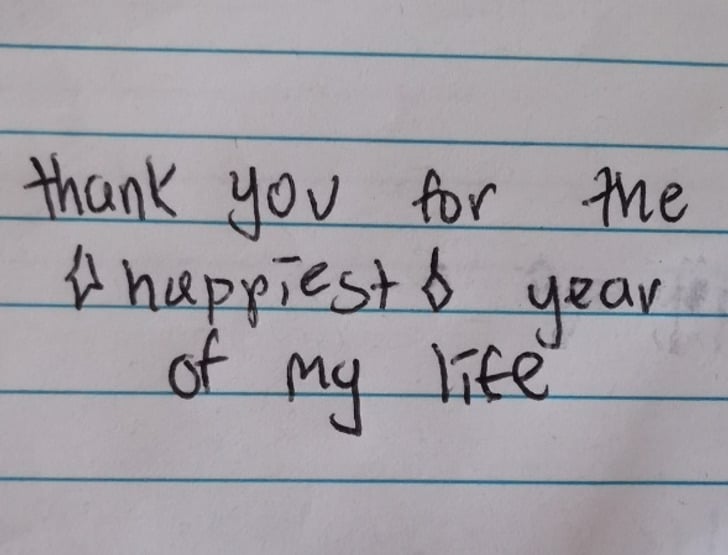 thank you for the
happiest year
of my life